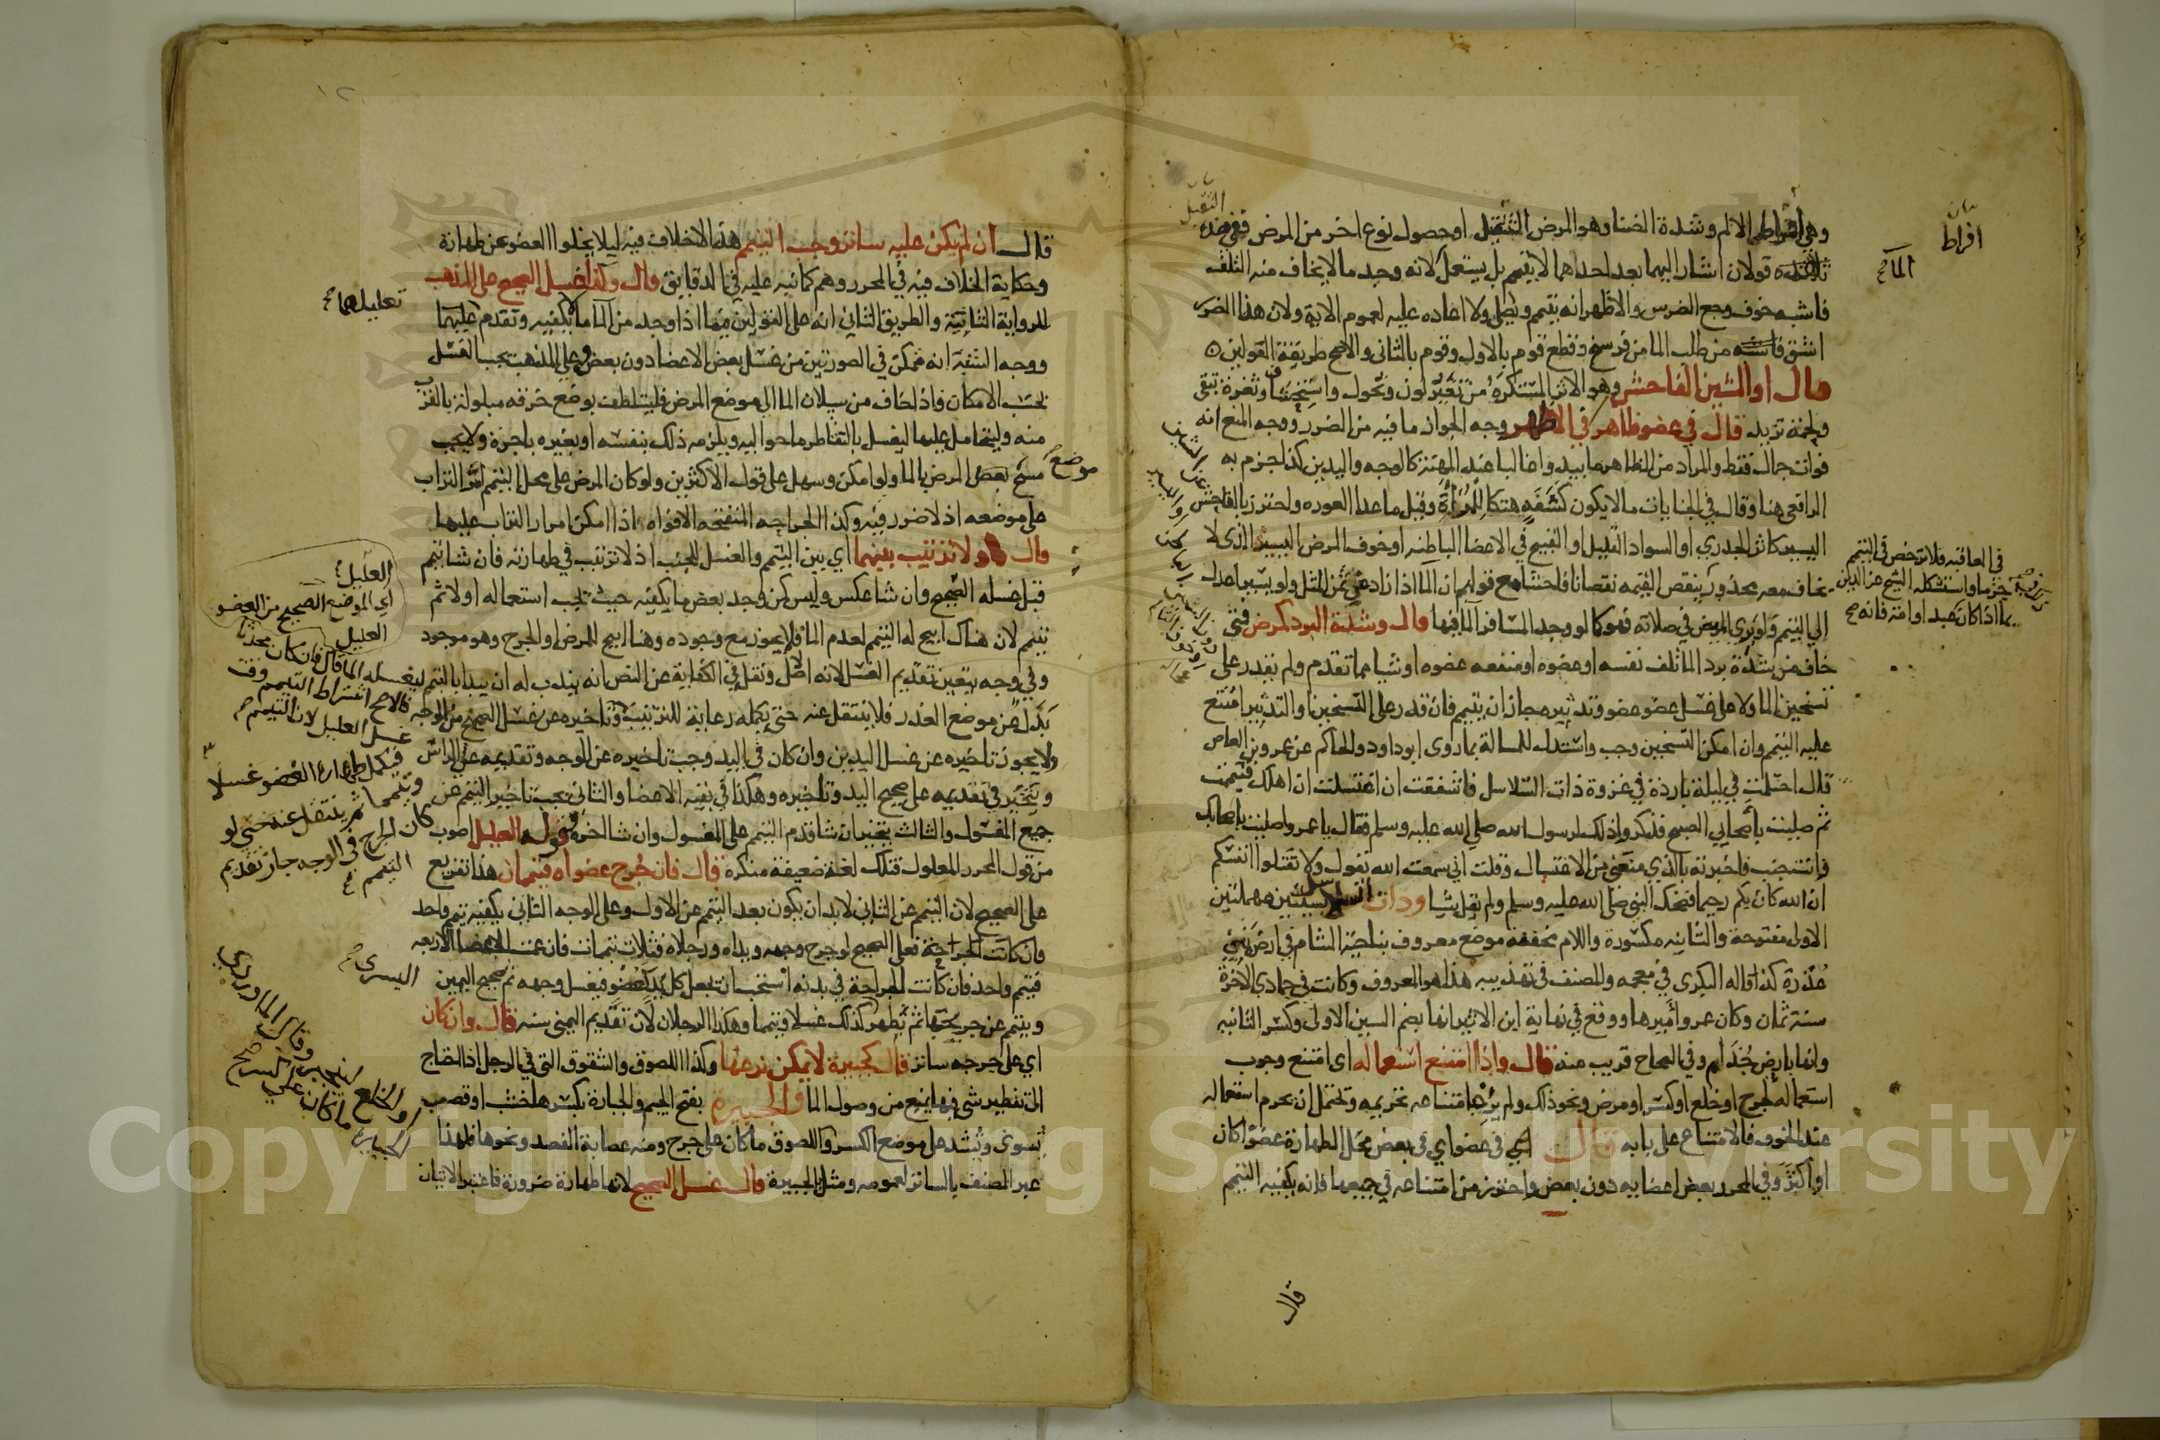 وهي افراط الالم وشدة الضنا وهو المرض الثقيل او حصول نوع اخر من المرض ففي هذه
ثلاثة قولان اشار اليهما بعد احداهما لا يتيمم بل يستعمل لانه وجد ما لا يخاف منه التلف
فاشبه خوف وجع الضرس والاظهر انه يتيمم ويصلي ولا اعاده عليه لعموم الاية ولان هذا الضرر
اشق من طلب الما من فرسخ وقطع قوم بالاول وقوم بالثاني والاصح طريقة القولين
قال او الشين الفاحش وهو الاثر المستكره من تغير لون ونحول واستحشاف وثغرة تبقى
ولحمة تزيد قال في عضو ظاهر في الاظهر وجه الجواز ما فيه من الضرر ووجه المنع انه
فوات جمال فقط والمراد من الظاهر ما يبدوا غالبا عند المهنة كالوجه واليدين كذا جزم به
الرافعي هنا وقال في الجنايات ما لا يكون كشفه هتكا للمروءة وقيل ما عدا العوره واحترز بالفاحش
اليسير كاثر الجدري او السواد القليل او القبيح في الاعضا الباطنه او خوف المرض اليسير الذي لا
يخاف معه محذورا ينقص القيمه نقصانا فاحشا مع قولهم ان الما اذا زاد على ثمن المثل ولو يسيرا عدل
الي التيمم ولو برى المريض في صلاته فهو كما لو وجد المسافر الما فيها قال وشدة البرد كمرض فمتى
خاف من شدة برد الما تلف نفسه او عضوه او منفعه عضوه او شيا مما تقدم ولم يقدر على
تسخين الما ولا على غسل عضو عضو وتدثيره جاز ان يتيمم فان قدر على التسخين او التدثير امتنع
عليه التيمم وان امكن التسخين وجب واستدل للمسالة بما روى ابو داود والحاكم عن عمرو بن العاص
قال احتلمت في ليلة باردة في غزوة ذات السلاسل فاشفقت ان اغتسلت ان اهلك فتيممت
ثم صليت باصحابي الصبح فذكروا ذلك لرسول الله صلى الله عليه وسلم فقال يا عمرو اصليت باصحابك
وانت جنب فاخبرته بالذي منعني من الاغتسال وقلت اني سمعت الله تعالى يقول ولا تقتلوا انفسكم
ان الله كان بكم رحيما فضحك النبي صلى الله عليه وسلم ولم يقل شيا وذات السلاسل بسينين مهملتين
الاولى مفتوحة والثانيه مكسورة واللام مخففة موضع معروف بناحية الشام في ارض بني
عذرة كذا قاله البكري في معجمه والمصنف في تهذيبه هذا هو المعروف وكانت في جمادي الاخرة
سنة ثمان وكان عمرو اميرها ووقع في نهاية ابن الاثير انها بضم السين الاولى وكسر الثانيه
وانها بارض جذام وفي الصحاح قريب منه قال واذا امتنع استعماله اي امتنع وجوب
استعماله لجرح او خلع او كسر او مرض ونحو ذلك ولم يرد بامتناعه تحريمه ويحتمل ان يحرم استعماله
عند الخوف فالامتناع على بابه قال اي في عضو اي في بعض محل الطهارة عضوا كان
او اكثر وفي المحرر بعض اعضايه دون بعض واحترز من امتناعه في جميعها فانه يكفيه التيمم
قال
افراط
الما
الثقيل
قال ان لم يكن عليه ساتر وجب التيمم هذا لا خلاف فيه ليلا يخلوا العضو عن طهارة
وحكاية الخلاف فيه في المحرر وهم كما نبه عليه في الدقايق قال وكذا غسل الصحيح على المذهب
للرواية الثانية والطريق الثاني انه على القولين فيما اذا وجد من الما ما لا يكفيه وتقدم عليهما
ووجه الشبه انه تمكن في الصورتين من غسل بعض الاعضا دون بعض وعلى المذهب يجب الغسل
بحسب الامكان واذا خاف من سيلان الما الي موضع المرض فليتلطف بوضع خرقة مبلولة بالقرب
منه وليتحامل عليها ليغسل بالتقاطر ما حواليه ويلزمه ذلك بنفسه او بغيره باجرة ولا يجب
مسح موضع المرض بالما ولو امكن وسهل على قول الاكثرين ولو كان المرض على محل التيمم امر التراب
على موضعه اذ لا ضرر فيه وكذا الجراحه المنفتحه الافواه اذا امكن امرار التراب عليها
قال ولا ترتيب بينهما اي بين التيمم والغسل للجنب اذ لا ترتيب في طهارته فان شا تيمم
قبل غسله الصحيح وان شا عكس وليس كمن وجد بعض ما يكفيه حيث يجب استعماله اولا ثم
يتيمم لان هناك ابيح له التيمم لعدم الما فلا يجوز مع وجوده وهنا ابيح للمرض او الجرح وهو موجود
وفي وجه يتعين تقديم الغسل لانه اصل ونقل في الكفاية عن النص انه يندب له ان يبدا بالتيمم ليغسله الما
بدل عن موضع العذر فلا ينتقل عنه حتى يكمله رعاية للترتيب وتاخيره عن غسل الصحيح من الوجه
ولا يجوز تاخيره عن غسل اليدين وان كان في اليد وجب تاخيره عن الوجه وتقديمه على الراس
ويتخير في تقديمه على صحيح اليد وتاخيره وهكذا في بقيه الاعضا والثاني يجب تاخير التيمم عن
جميع المغسول والثالث يتخير ان شا قدم التيمم على المغسول وان شا اخره وقوله العليل اصوب
من قول المحرر المعلول فتلك لغة ضعيفة منكرة قال فان جرح عضواه فتيممان هذا تفريع
على الصحيح لان التيمم عن الثاني لا بد ان يكون بعد التيمم عن الاول وعلى الوجه الثاني يكفيه تيمم واحد
فان كانت الجراحة فعلى الصحيح لو جرح وجهه ويداه ورجلاه فثلاث تيممات فان عمت الاعضا الاربعه
فتيمم واحد فان كانت الجراحة في بدنه استحب ان يجعل كل يد كعضو فيغسل وجهه ثم صحيح اليمين
ويتيمم عن جريحتها ثم يطهر كذلك غسلا وتيمما وهكذا الرجلان لان تقديم اليمنى سنه قال وان كان
اي على جرحه ساتر قال كجبيرة لا يمكن نزعها وكذا اللصوق والشقوق التي في الرجل اذا احتاج
الى تقطير شي فيها يمنع من وصول الما والجبيرة بفتح الجيم والجبارة بكسرها خشب او قصب
يسوى ويشد على موضع الكسر واللصوق ما كان على جرح ومنه عصابة الفصد ونحوها فلهذا
عبر المصنف بالساتر لعمومه ومثل بالجبيرة قال غسل الصحيح لانها طهارة ضرورة فاعتبر الاتيان
تعليلهما
موضع
اليسرى
Copyright © King Saud University
1957